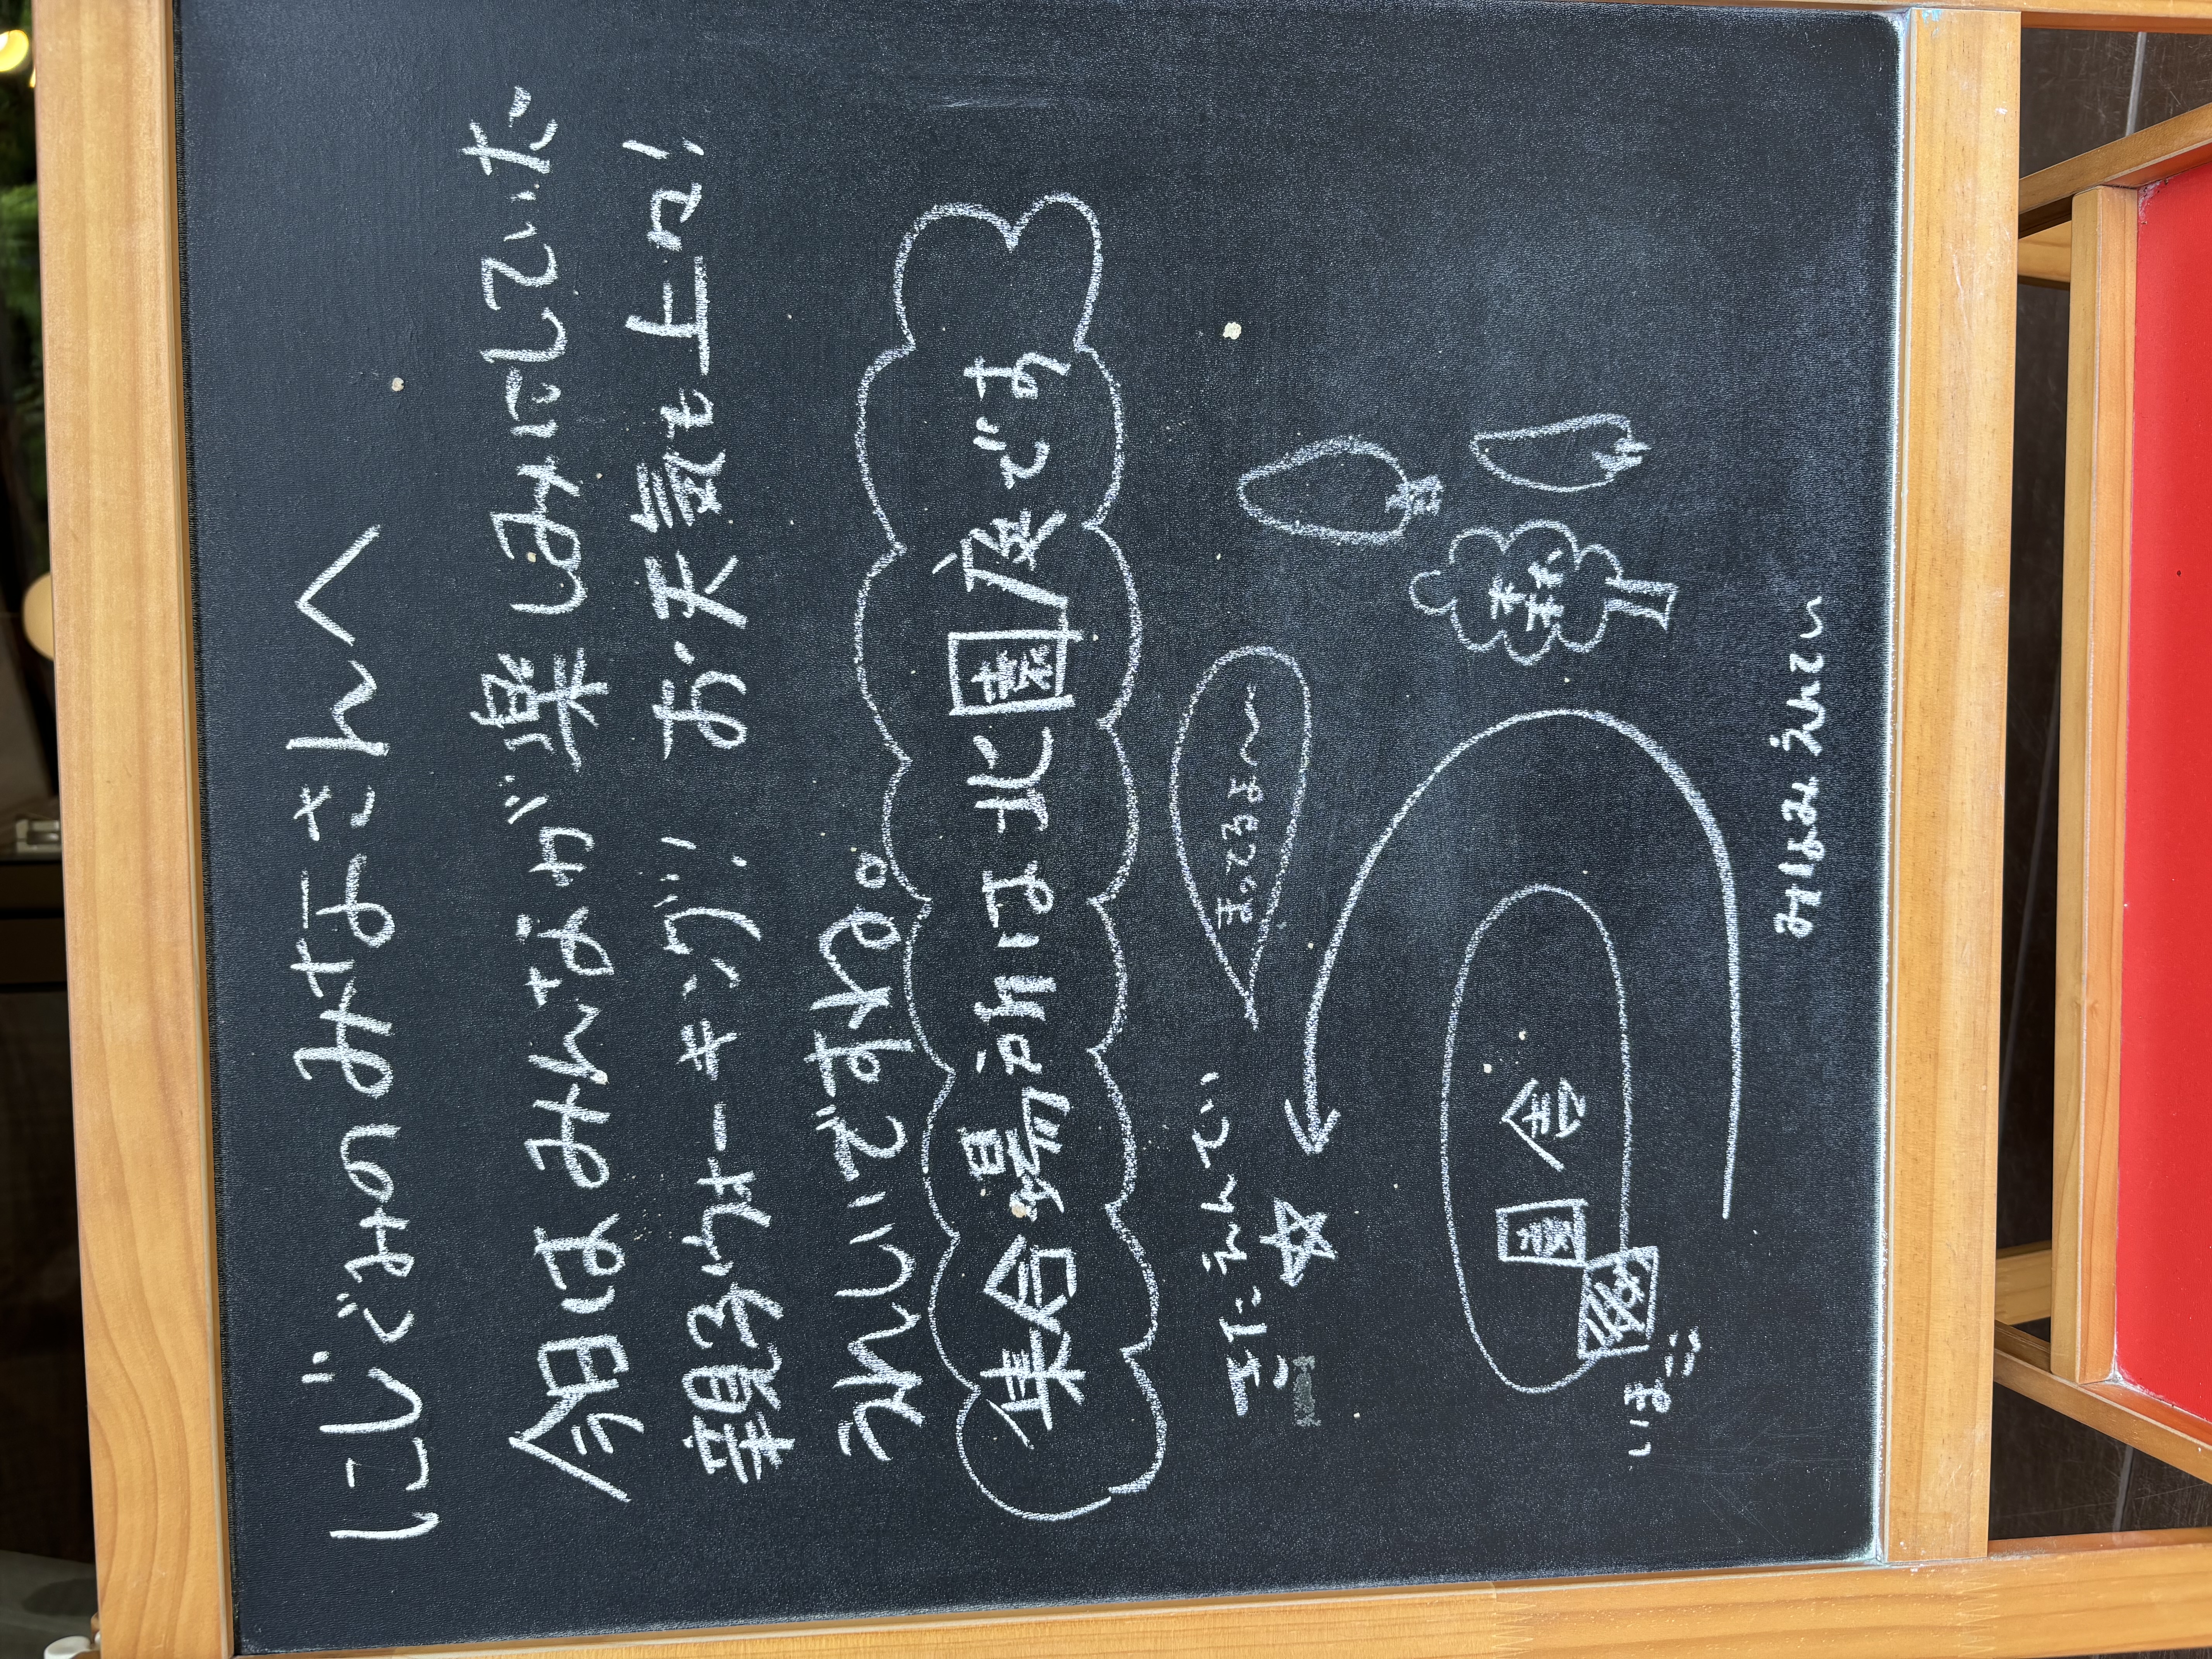 にじぐみのみなさんへ
今日はみんなが楽しみにしていた
親子ウォーキング! お天気も上々!
うれしいですね。
集合場所は北園庭です
まってるよ〜
えんてい
森
園舎
いまここ
みなみえんてい